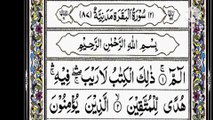 (٢) سُوْرَةُ الْبَقَرَةِ مَدَنِيَّةٌ (٨٧)
بِسْمِ اللّٰهِ الرَّحْمٰنِ الرَّحِيْمِ
الٓمّٓ ذٰلِكَ الْكِتٰبُ لَا رَيْبَ فِيْهِ
هُدًى لِّلْمُتَّقِيْنَ الَّذِيْنَ يُؤْمِنُوْنَ